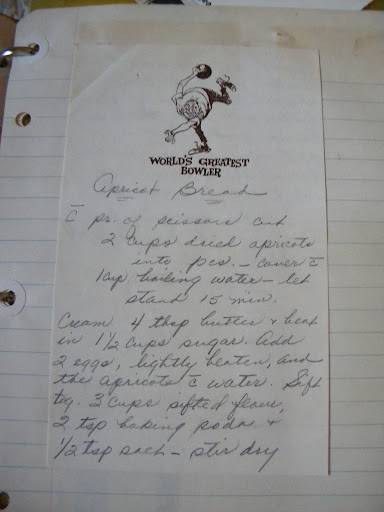 WORLD'S GREATEST
BOWLER
Apricot Bread
c̄ pr. of scissors cut
2 cups dried apricots
into pcs. – cover c̄
1 cup boiling water – let
stand 15 min.
Cream 4 tbsp butter & beat
in 1 1/2 cups sugar. Add
2 eggs, lightly beaten, and
the apricots c̄ water. Sift
tog. 3 cups sifted flour,
2 tsp baking soda &
1/2 tsp salt – stir dry